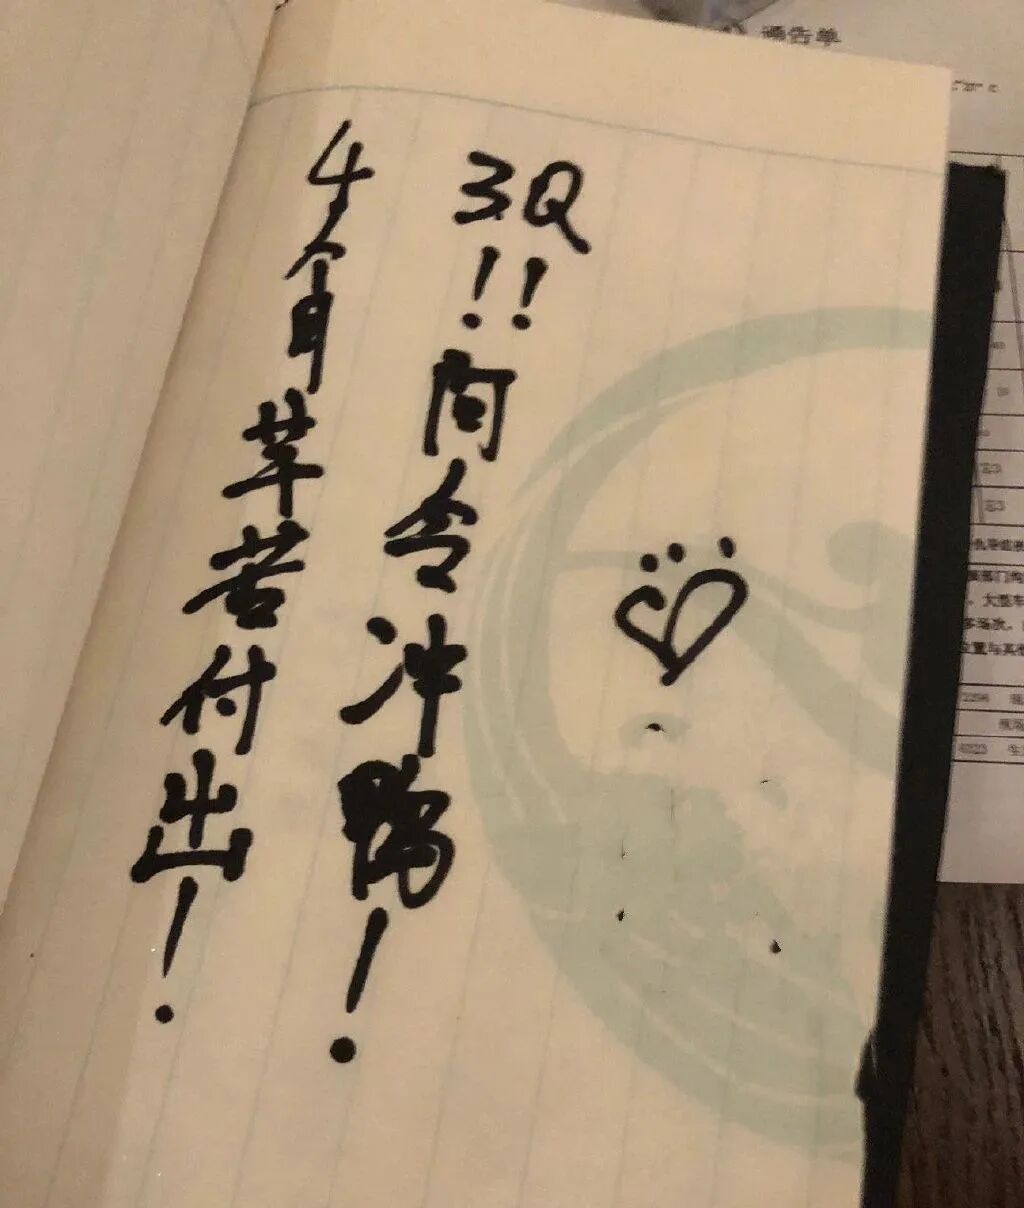 4个月辛苦付出!
3Q!!向令冲鸭!
通告单